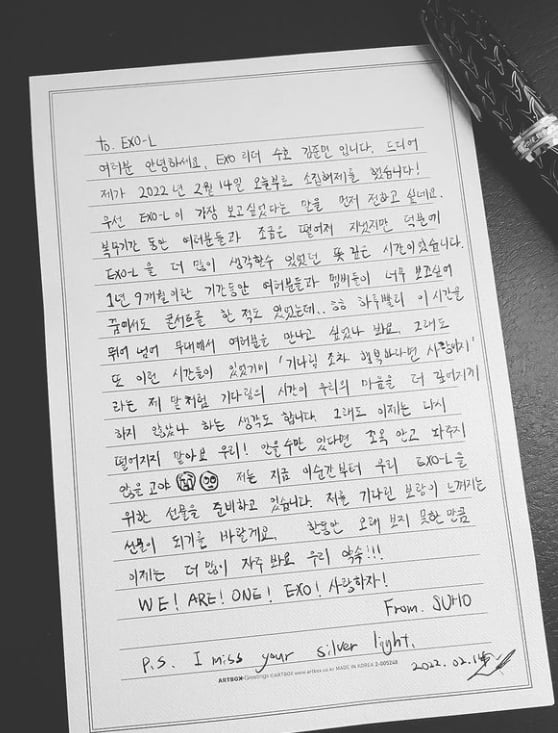 to. EXO-L
여러분 안녕하세요. EXO 리더 수호 김준면 입니다. 드디어
제가 2022년 2월 14일 오늘부로 소집해제를 했습니다!
우선 EXO-L이 가장 보고싶었다는 말을 먼저 전하고 싶네요.
복무기간 동안 여러분들과 조금은 떨어져 지냈지만 덕분에
EXO-L을 더 많이 생각할수 있었던 뜻 깊은 시간이었습니다.
1년 9개월이란 기간동안 여러분들과 멤버들이 너무 보고싶어
꿈에서도 콘서트를 한 적도 있었는데.. ㅎㅎ 하루빨리 이 시간을
뛰어 넘어 무대에서 여러분을 만나고 싶었나 봐요. 그래도
또 이런 시간들이 있었기에 '기다림 조차 행복하라면 사랑이지'
라는 제 말처럼 기다림의 시간이 우리의 마음을 더 깊어지게
하지 않았나 하는 생각도 합니다. 그래도 이제는 다시
떨어지지 말아요 우리! 안을수만 있다면 조옥 안고 놔주지
않을 고야 저는 지금 이순간부터 우리 EXO-L을
위한 선물을 준비하고 있습니다. 저를 기다린 보람이 느껴지는
선물이 되기를 바랄게요. 한동안 오래 보지 못한 만큼
이제는 더 많이 자주 봐요 우리 약속!!!
WE! ARE! ONE! EXO! 사랑하자!
From. SUHO
P.S. I miss your silver light.
2022. 02. 14
ARTBOX Greetings ©ARTBOX www.artbox.co.kr MADE IN KOREA 2-005248